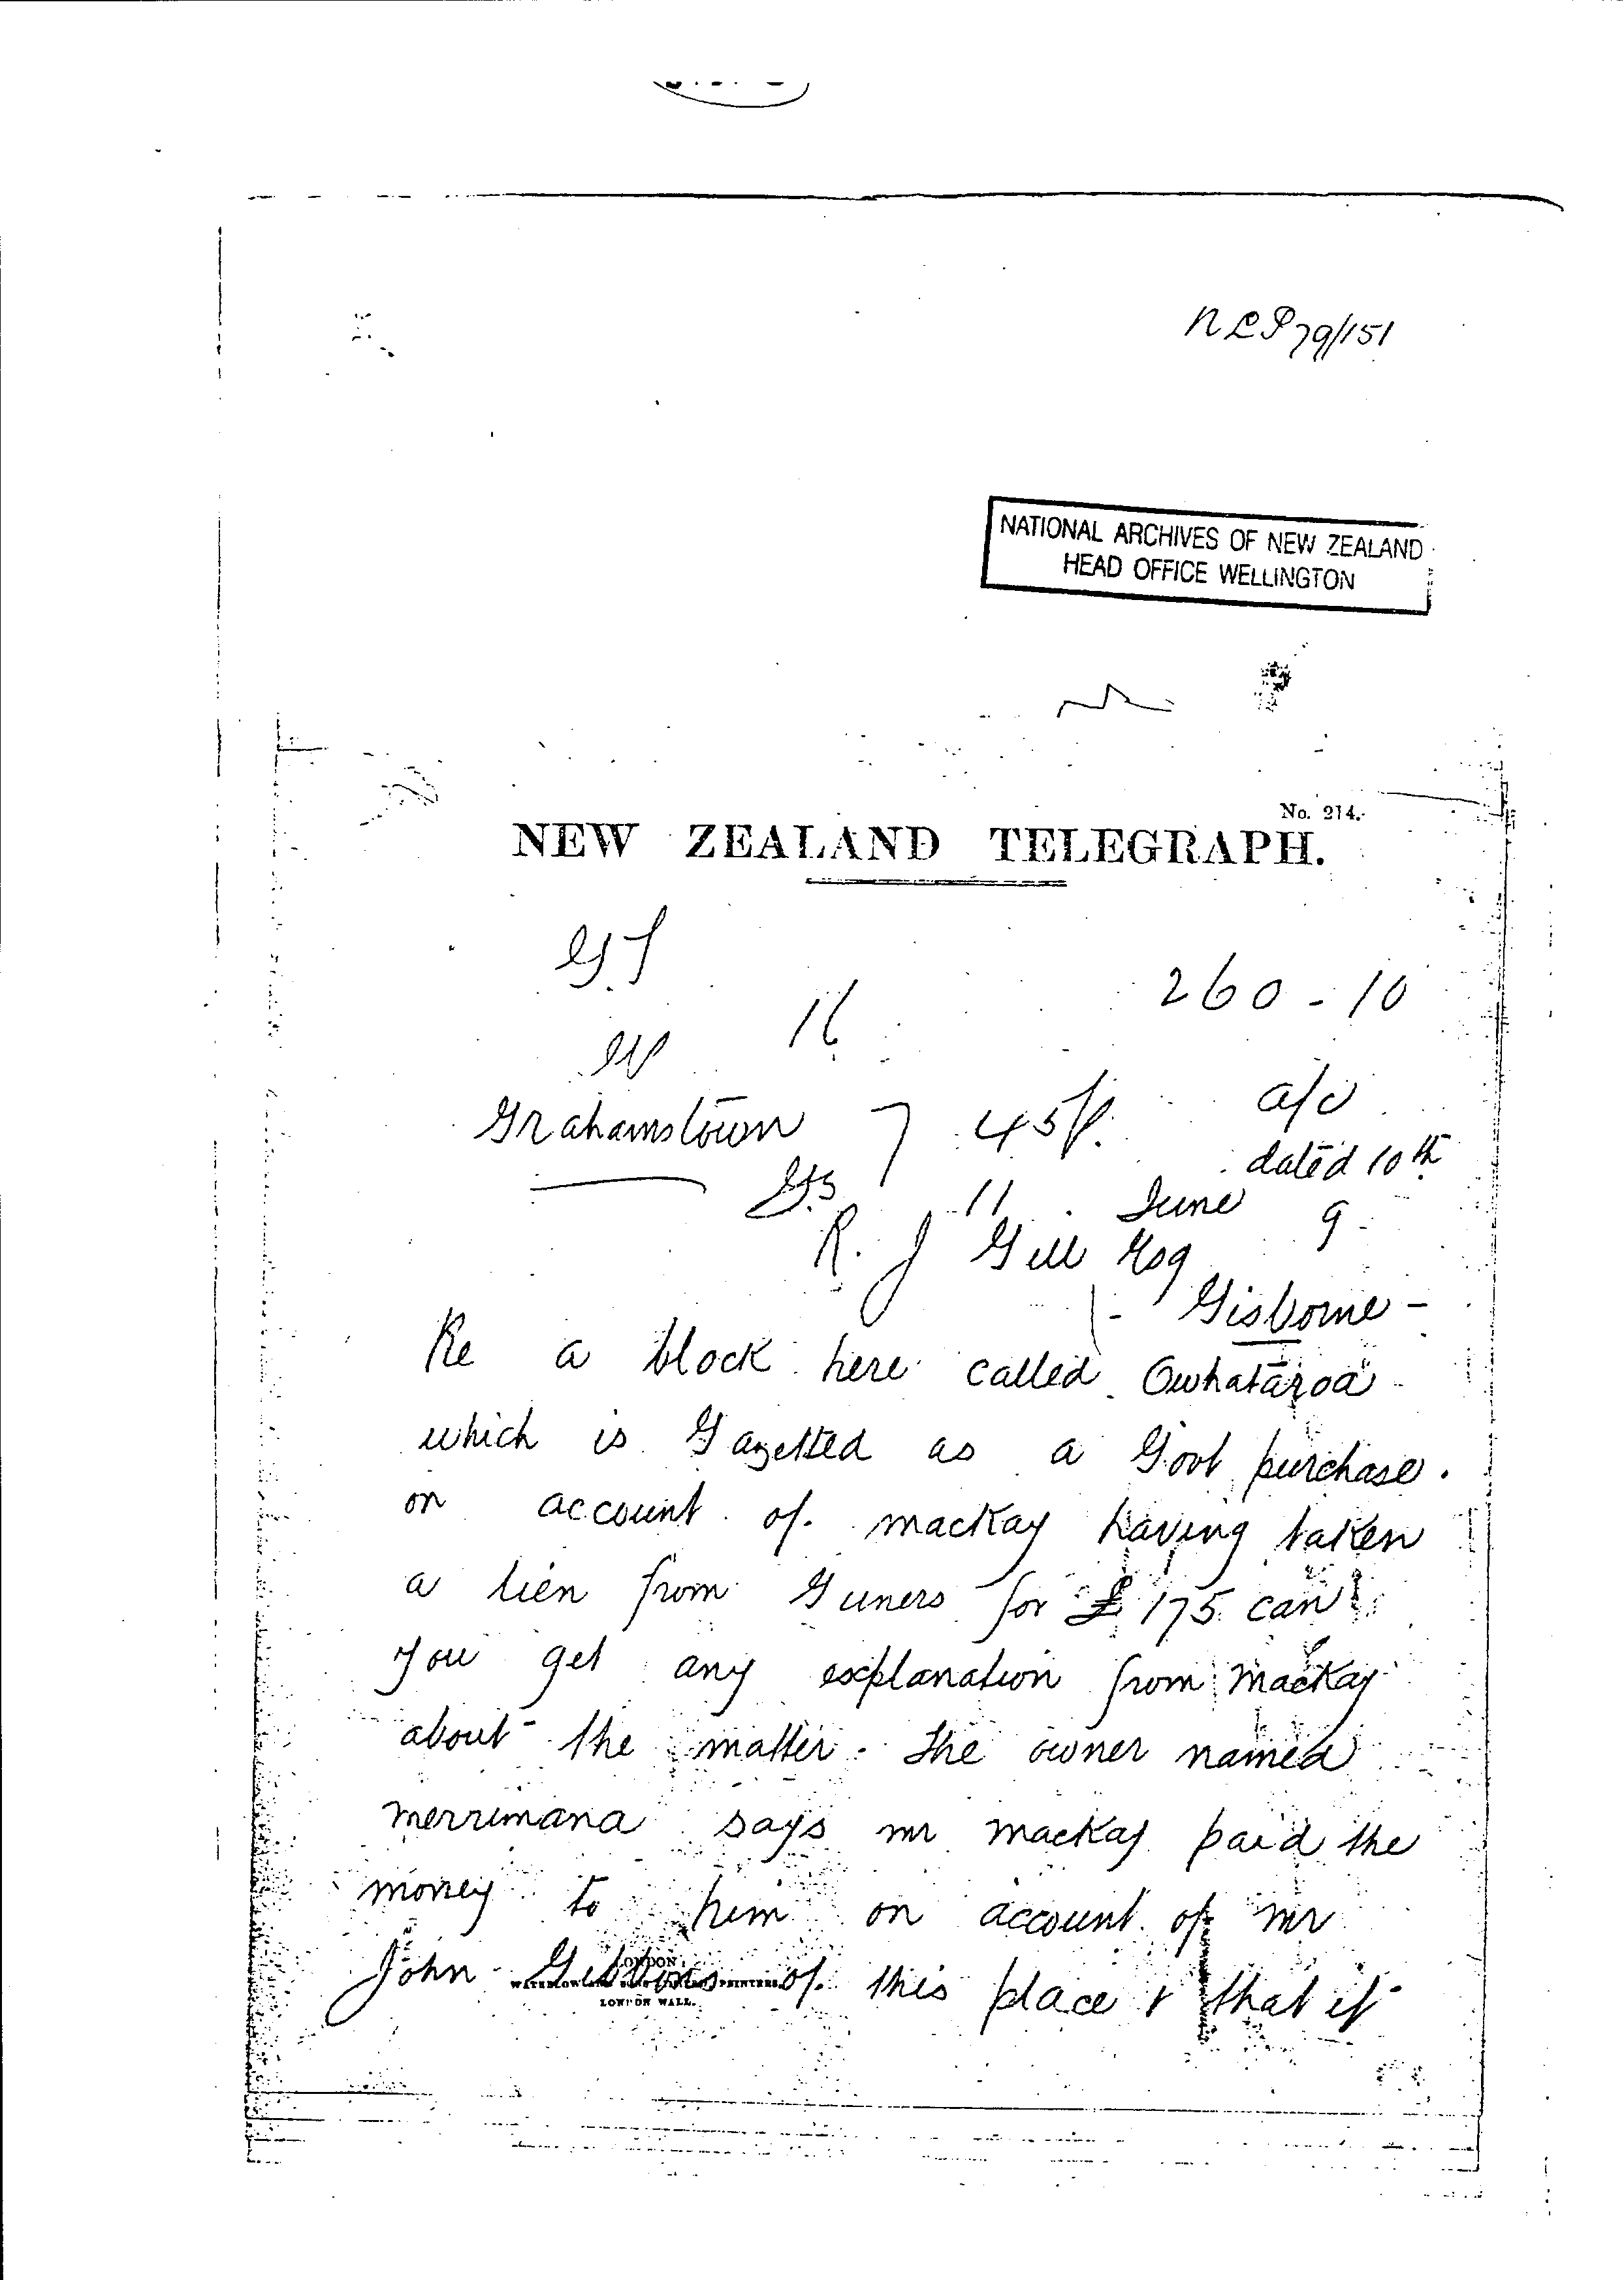 NLP 79/151
NATIONAL ARCHIVES OF NEW ZEALAND
HEAD OFFICE WELLINGTON
No. 214.
NEW ZEALAND TELEGRAPH.
260 - 10
Grahamstown 7 45p. a/c
dated 10th
11 June 9
R. J Gill Esq
Gisborne -
Re a block here called Owhataroa
which is Gazetted as a Govt purchase.
on account of mackay having taken
a lien from for £175 can
you get any explanation from mackay
about the matter. The owner named
merrimana says mr mackay paid the
money to him on account of mr
John of this place & that it
LONDON
PRINTERS
LONDON WALL.